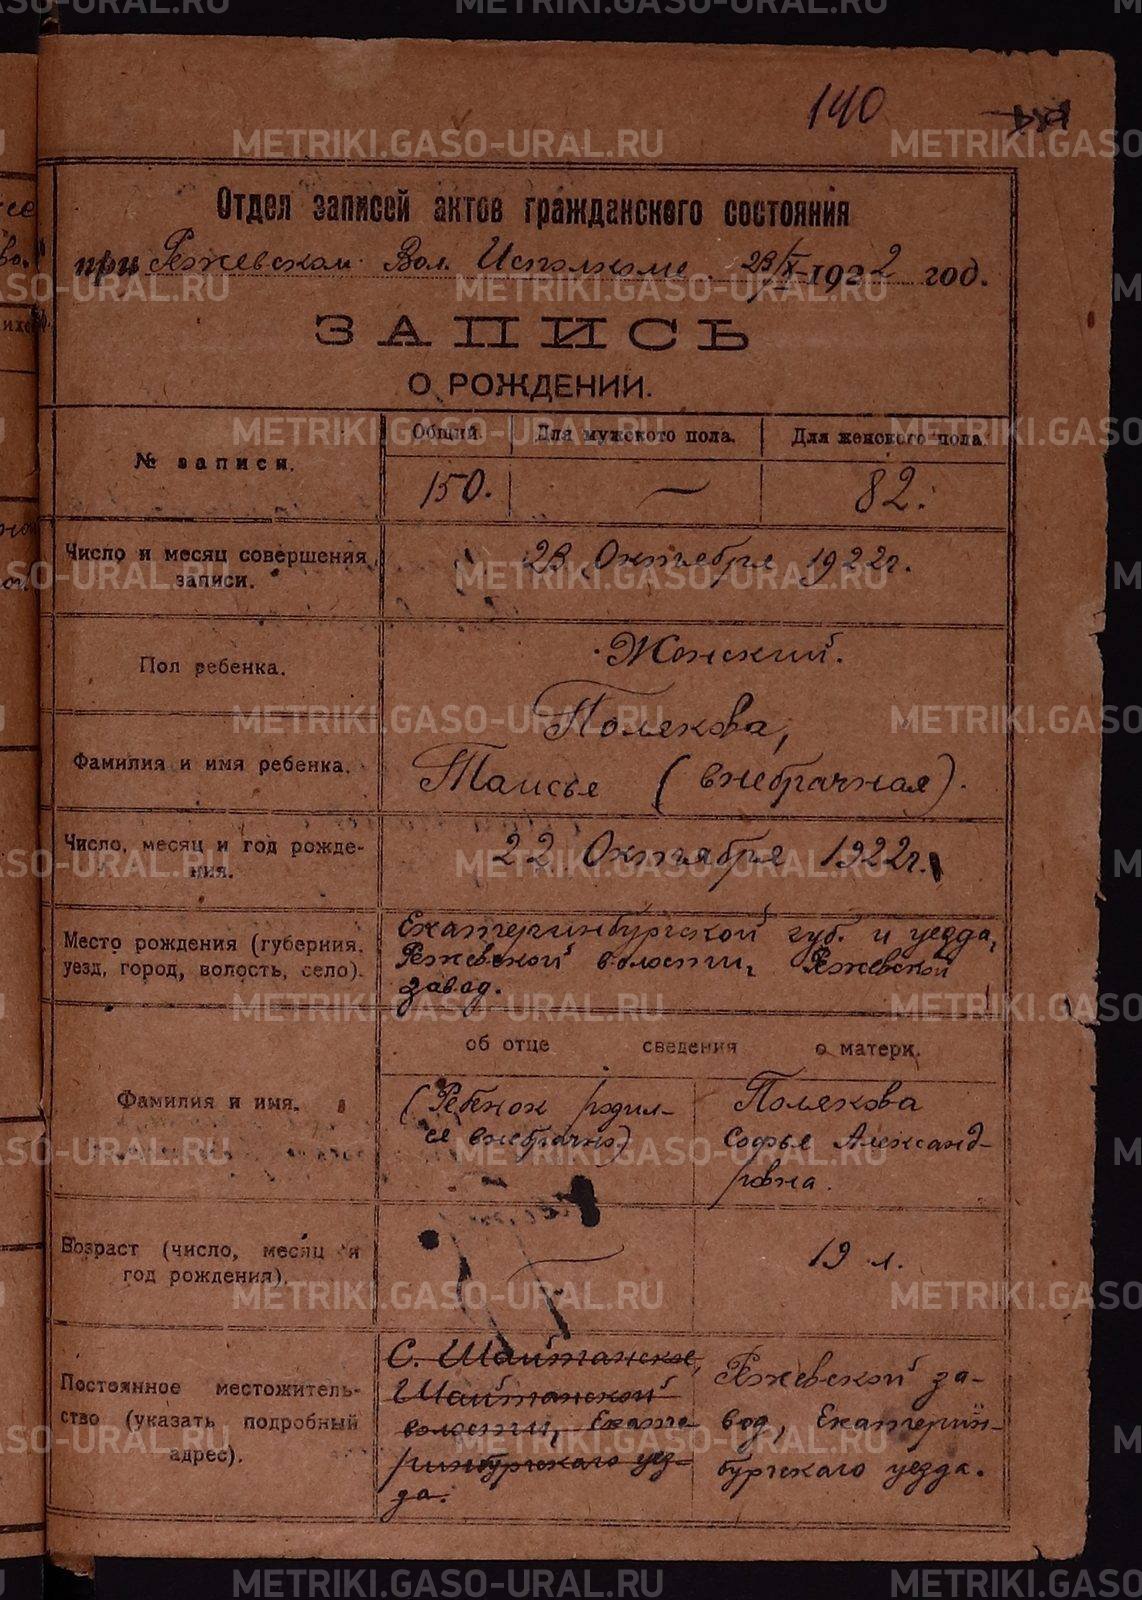 140
Отдел записей актов гражданского состояния
при Режевском Вол. Исполкоме 23/X-1922 год.
ЗАПИСЬ
О РОЖДЕНИИ.
№ записи.
Общий.
Для мужского пола.
Для женского пола.
150.
—
82.
Число и месяц совершения
записи.
23 Октября 1922г.
Пол ребенка.
Женский.
Фамилия и имя ребенка.
Полякова,
Таисья (внебрачная).
Число, месяц и год рожде-
ния.
22 Октября 1922г.
Место рождения (губерния,
уезд, город, волость, село).
Екатеринбургской губ. и уезда,
Режевской волости, Режевской
завод.
об отце сведения о матери.
Фамилия и имя.
(Ребенок родил-
ся внебрачно)
Полякова
Софья Александ-
ровна.
Возраст (число, месяц и
год рождения).
—
19 л.
Постоянное местожитель-
ство (указать подробный
адрес).
С. Шайтанское,
Шайтанской
волости, Екате-
ринбургского уез-
да.
Режевской за-
вод, Екатерин-
бургского уезда.
METRIKI.GASO-URAL.RU